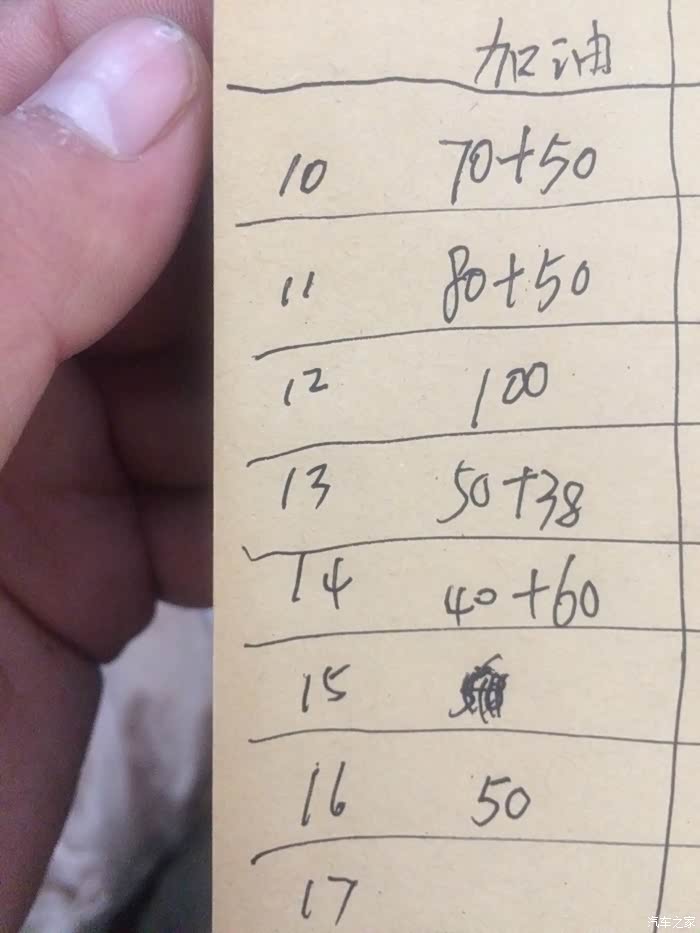 加油
10 70+50
11 80+50
12 100
13 50+38
14 40+60
15
16 50
17
汽车之家